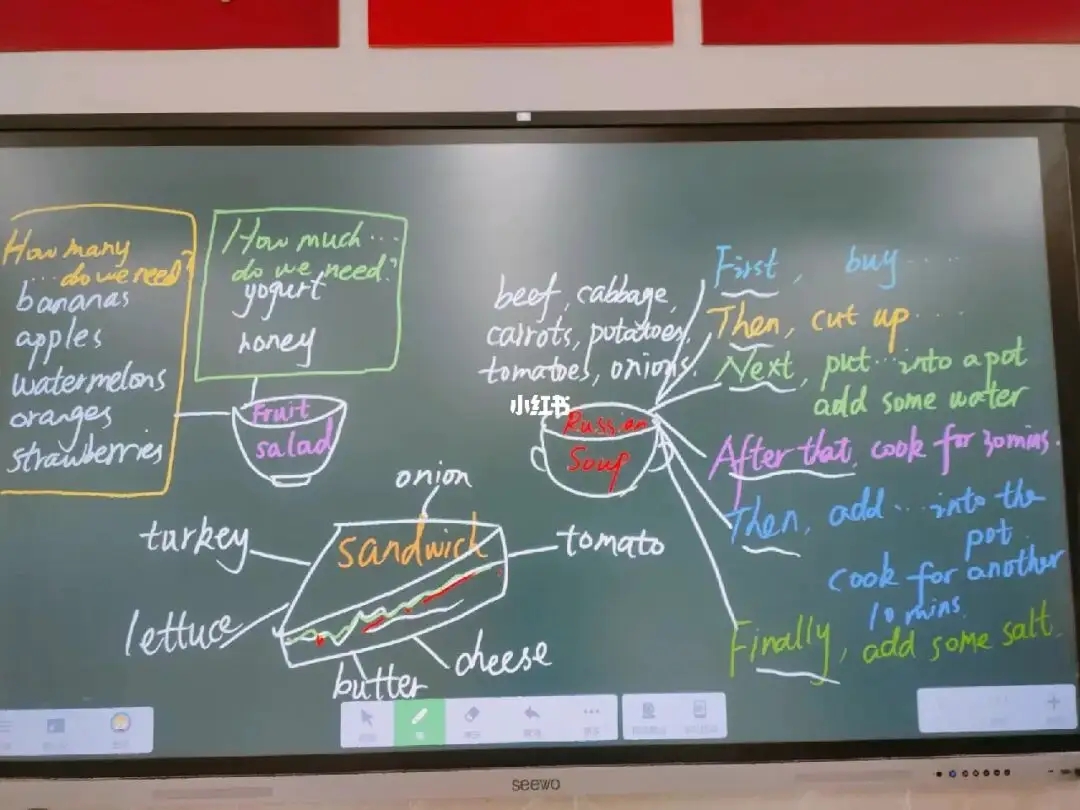 How many
... do we need?
bananas
apples
watermelons
oranges
strawberries
How much ...
do we need?
yogurt
honey
Fruit
salad
beef, cabbage,
carrots, potatoes,
tomatoes, onions.
小红书
Russian
Soup
First, buy .....
Then, cut up ....
Next, put ... into a pot
add some water
After that, cook for 30 mins.
Then, add ... into the
pot
cook for another
10 mins.
Finally, add some salt.
onion
turkey
sandwich
tomato
lettuce
butter
cheese
seewo